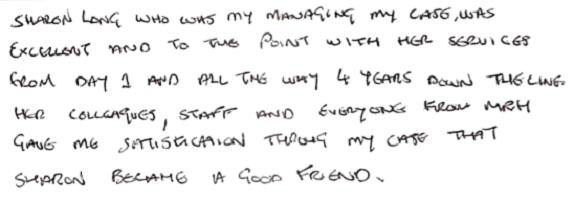 SHARON LONG WHO WAS MY MANAGING MY CASE, WAS
EXCELLENT AND TO THE POINT WITH HER SERVICES
FROM DAY 1 AND ALL THE WAY 4 YEARS DOWN THE LINE.
HER COLLEAGUES, STAFF AND EVERYONE FROM MRH
GAVE ME SATISFICATION THROUG MY CASE THAT
SHARON BECAME A GOOD FRIEND.